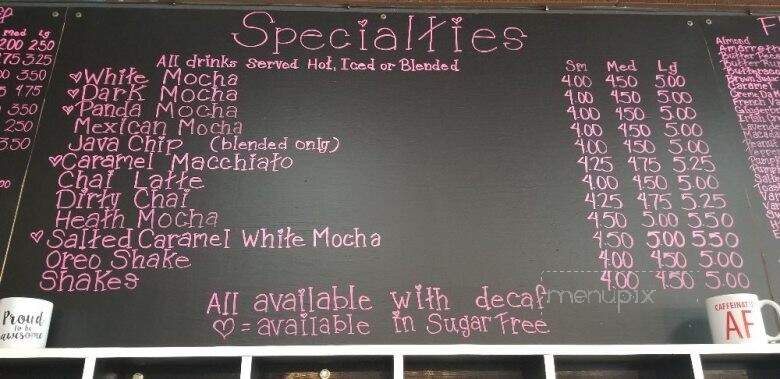 Specialties
All drinks Served Hot, Iced or Blended
Sm Med Lg
♥White Mocha 4.00 4.50 5.00
♥Dark Mocha 4.00 4.50 5.00
♥Panda Mocha 4.00 4.50 5.00
Mexican Mocha 4.00 4.50 5.00
Java Chip (blended only) 4.00 4.50 5.00
♥Caramel Macchiato 4.25 4.75 5.25
Chai Latte 4.00 4.50 5.00
Dirty Chai 4.25 4.75 5.25
Heath Mocha 4.50 5.00 5.50
♥Salted Caramel White Mocha 4.50 5.00 5.50
Oreo Shake 4.00 4.50 5.00
Shakes 4.00 4.50 5.00
All available with decaf
♥= available in Sugar Free
med Lg
2.00 2.50
2.75 3.25
3.50
4.75
3.50
2.50
3.50
Almond
Caramel
menupix
Proud
to be
awesome
CAFFEINATED
AF